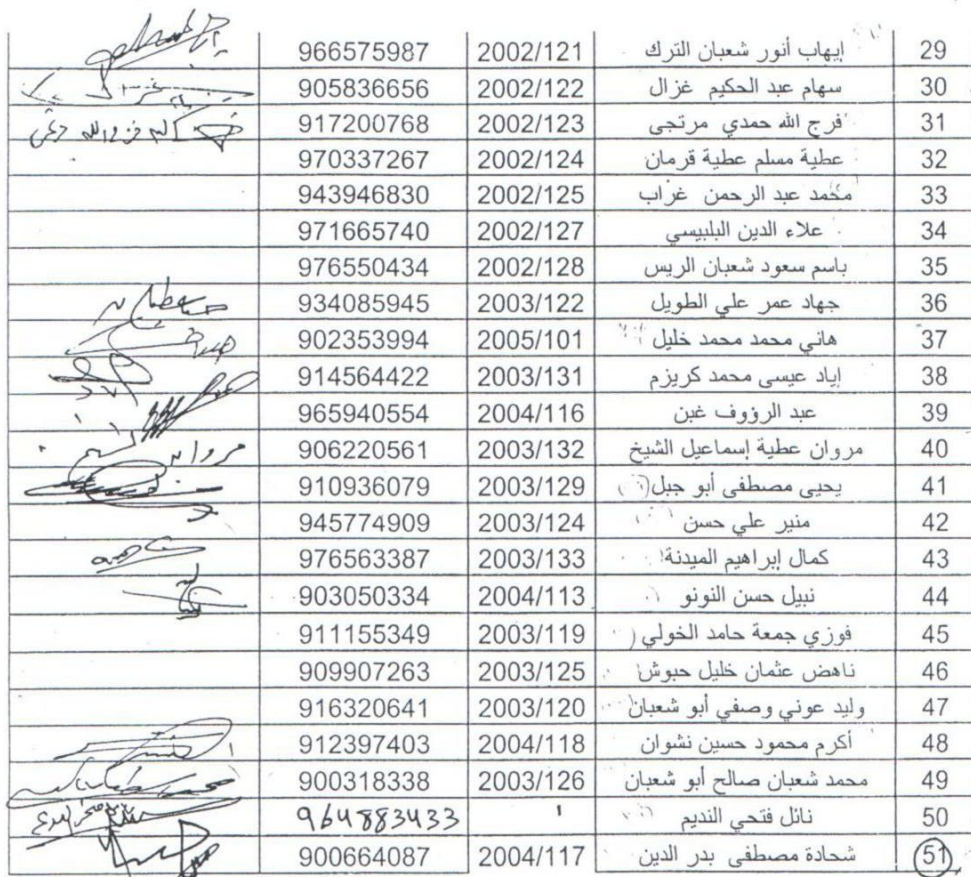 29 إيهاب أنور شعبان الترك 2002/121 966575987
30 سهام عبد الحكيم غزال 2002/122 905836656
31 فرج الله حمدي مرتجى 2002/123 917200768
32 عطية مسلم عطية قرمان 2002/124 970337267
33 محمد عبد الرحمن غراب 2002/125 943946830
34 علاء الدين البلبيسي 2002/127 971665740
35 باسم سعود شعبان الريس 2002/128 976550434
36 جهاد عمر علي الطويل 2003/122 934085945
37 هاني محمد محمد خليل 2005/101 902353994
38 إياد عيسى محمد كريزم 2003/131 914564422
39 عبد الرؤوف غبن 2004/116 965940554
40 مروان عطية إسماعيل الشيخ 2003/132 906220561
41 يحيى مصطفى أبو جبل 2003/129 910936079
42 منير علي حسن 2003/124 945774909
43 كمال إبراهيم الميدنة 2003/133 976563387
44 نبيل حسن النونو 2004/113 903050334
45 فوزي جمعة حامد الخولي 2003/119 911155349
46 ناهض عثمان خليل حبوش 2003/125 909907263
47 وليد عوني وصفي أبو شعبان 2003/120 916320641
48 أكرم محمود حسين نشوان 2004/118 912397403
49 محمد شعبان صالح أبو شعبان 2003/126 900318338
50 نائل فتحي النديم 964883433
51 شحادة مصطفى بدر الدين 2004/117 900664087